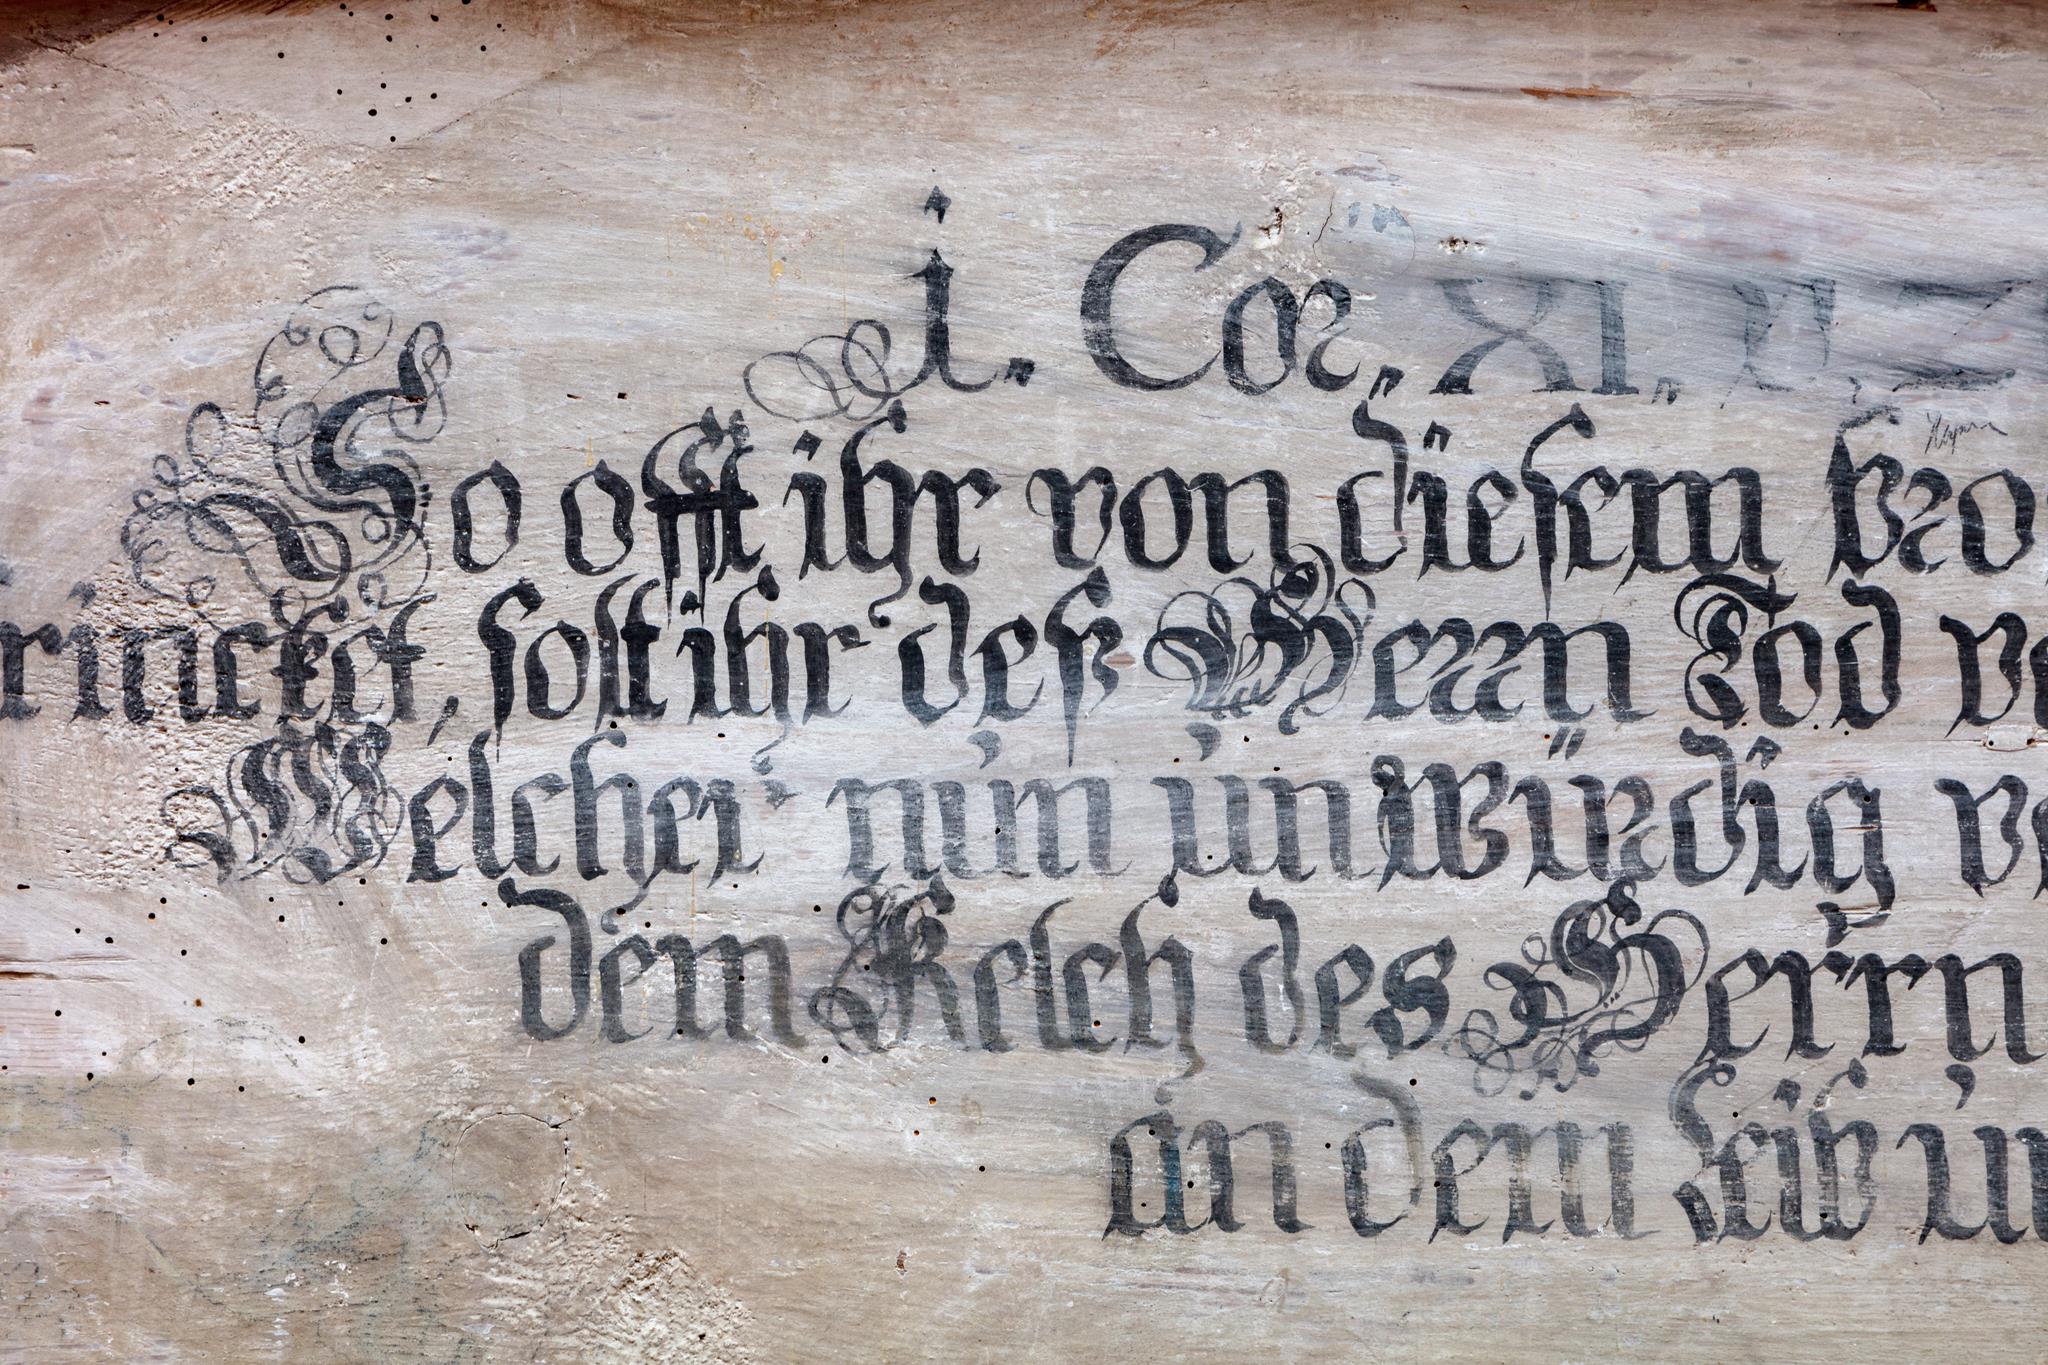 i. Cor. XI. v. 2
So offt ihr von diesem bro
rincket, solt ihr deß Herrn Tod ve
Welcher nun unwürdig vo
dem Kelch des Herrn
an dem leib un